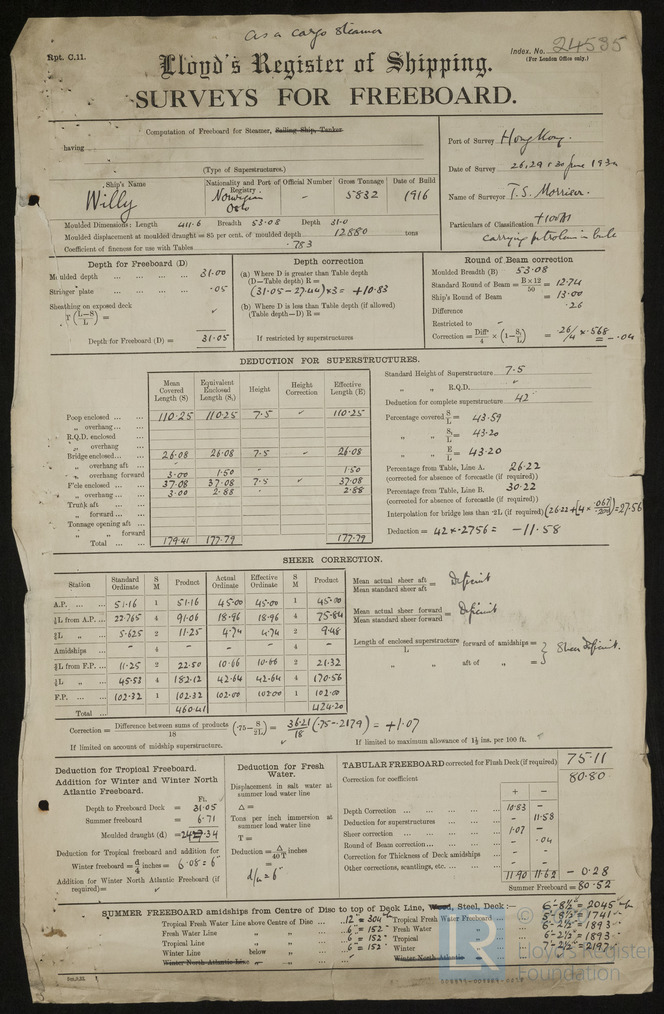 as a cargo steamer
Rpt. C.11.
Index. No. 24535
(For London Office only.)
Lloyd's Register of Shipping.
SURVEYS FOR FREEBOARD.
Computation of Freeboard for Steamer, Sailing Ship, Tanker
having
(Type of Superstructures.)
Port of Survey Hong Kong.
Date of Survey 26, 29 & 30 June 193
Name of Surveyor T.S. Morrison.
Particulars of Classification +100A1
carrying petroleum in bulk
Ship's Name Nationality and Port of Registry Official Number Gross Tonnage Date of Build
Willy Norwegian Oslo - 5832 1916
Moulded Dimensions: Length 411.6 Breadth 53.08 Depth 31.0
Moulded displacement at moulded draught = 85 per cent. of moulded depth 12880 tons
Coefficient of fineness for use with Tables .783
Depth for Freeboard (D)
Moulded depth ... 31.00
Stringer plate ... .05
Sheathing on exposed deck
T (L-S/L) =
Depth for Freeboard (D) = 31.05
Depth correction
(a) Where D is greater than Table depth
(D—Table depth) R =
(31.05 - 27.44) x 3 = +10.83
(b) Where D is less than Table depth (if allowed)
(Table depth—D) R =
If restricted by superstructures
Round of Beam correction
Moulded Breadth (B) 53.08
Standard Round of Beam = B×12/50 = 12.74
Ship's Round of Beam = 13.00
Difference .26
Restricted to -
Correction = Diff/4 × (1-S1/L) = .26/4 x .568 = -.04
DEDUCTION FOR SUPERSTRUCTURES.
Mean Covered Length (S) Equivalent Enclosed Length (S1) Height Height Correction Effective Length (E)
Poop enclosed ... 110.25 110.25 7.5 110.25
„ overhang ...
R.Q.D. enclosed
„ overhang
Bridge enclosed ... 26.08 26.08 7.5 26.08
„ overhang aft -
„ overhang forward 3.00 1.50 1.50
F'cle enclosed ... 37.08 37.08 7.5 37.08
„ overhang ... 3.00 2.88 2.88
Trunk aft
„ forward ...
Tonnage opening aft
„ „ forward
Total ... 179.41 177.79 177.79
Standard Height of Superstructure 7.5
„ „ R.Q.D.
Deduction for complete superstructure 42
Percentage covered S/L = 43.59
„ „ S1/L = 43.20
„ „ E/L = 43.20
Percentage from Table, Line A. 26.22
(corrected for absence of forecastle (if required))
Percentage from Table, Line B. 30.22
(corrected for absence of forecastle (if required))
Interpolation for bridge less than .2L (if required) = 27.56
Deduction = 42 x .2756 = -11.58
SHEER CORRECTION.
Station Standard Ordinate S M Product Actual Ordinate Effective Ordinate S M Product
A.P. ... 51.16 1 51.16 45.00 45.00 1 45.00
⅙L from A.P. ... 22.765 4 91.06 18.96 18.96 4 75.84
⅓L „ 5.625 2 11.25 4.74 4.74 2 9.48
Amidships ... - 4 - - - 4 -
⅓L from F.P. ... 11.25 2 22.50 10.66 10.66 2 21.32
⅙L „ 45.53 4 182.12 42.64 42.64 4 170.56
F.P. ... 102.32 1 102.32 102.00 102.00 1 102.00
Total ... 460.41 424.20
Mean actual sheer aft / Mean standard sheer aft = Deficient
Mean actual sheer forward / Mean standard sheer forward = Deficient
Length of enclosed superstructure / L forward of amidships =
„ „ aft of „ = } Sheer deficient.
Correction = Difference between sums of products / 18 (.75 - S/2L) = 36.21/18 (.75 - .2179) = +1.07
If limited on account of midship superstructure.
If limited to maximum allowance of 1½ ins. per 100 ft.
Deduction for Tropical Freeboard.
Addition for Winter and Winter North Atlantic Freeboard.
Ft.
Depth to Freeboard Deck = 31.05
Summer freeboard = 6.71
Moulded draught (d) = 24.34
Deduction for Tropical freeboard and addition for
Winter freeboard = d/4 inches = 6.08 = 6"
Addition for Winter North Atlantic Freeboard (if required) =
Deduction for Fresh Water.
Displacement in salt water at summer load water line
Δ =
Tons per inch immersion at summer load water line
T =
Deduction = Δ/40T inches
=
d/4 = 6"
TABULAR FREEBOARD corrected for Flush Deck (if required) 75.11
Correction for coefficient 80.80
+ −
Depth Correction ... 10.83 -
Deduction for superstructures ... - 11.58
Sheer correction ... 1.07 -
Round of Beam correction ... - .04
Correction for Thickness of Deck amidships ... - -
Other corrections, scantlings, etc. ... - -
11.90 11.62 -0.28
Summer Freeboard = 80.52
SUMMER FREEBOARD amidships from Centre of Disc to top of Deck Line, Wood, Steel, Deck:— 6'-8½" = 2045
Tropical Fresh Water Line above Centre of Disc ... 12" = 304 Tropical Fresh Water Freeboard 5'-8½" = 1741
Fresh Water Line „ „ ... 6" = 152 Fresh Water „ 6'-2½" = 1893
Tropical Line „ „ ... 6" = 152 Tropical „ 6'-2½" = 1893
Winter Line below „ ... 6" = 152 Winter „ 7'-2½" = 2197
Winter North Atlantic Line „ „ Winter North Atlantic „
© LR Lloyd's Register Foundation